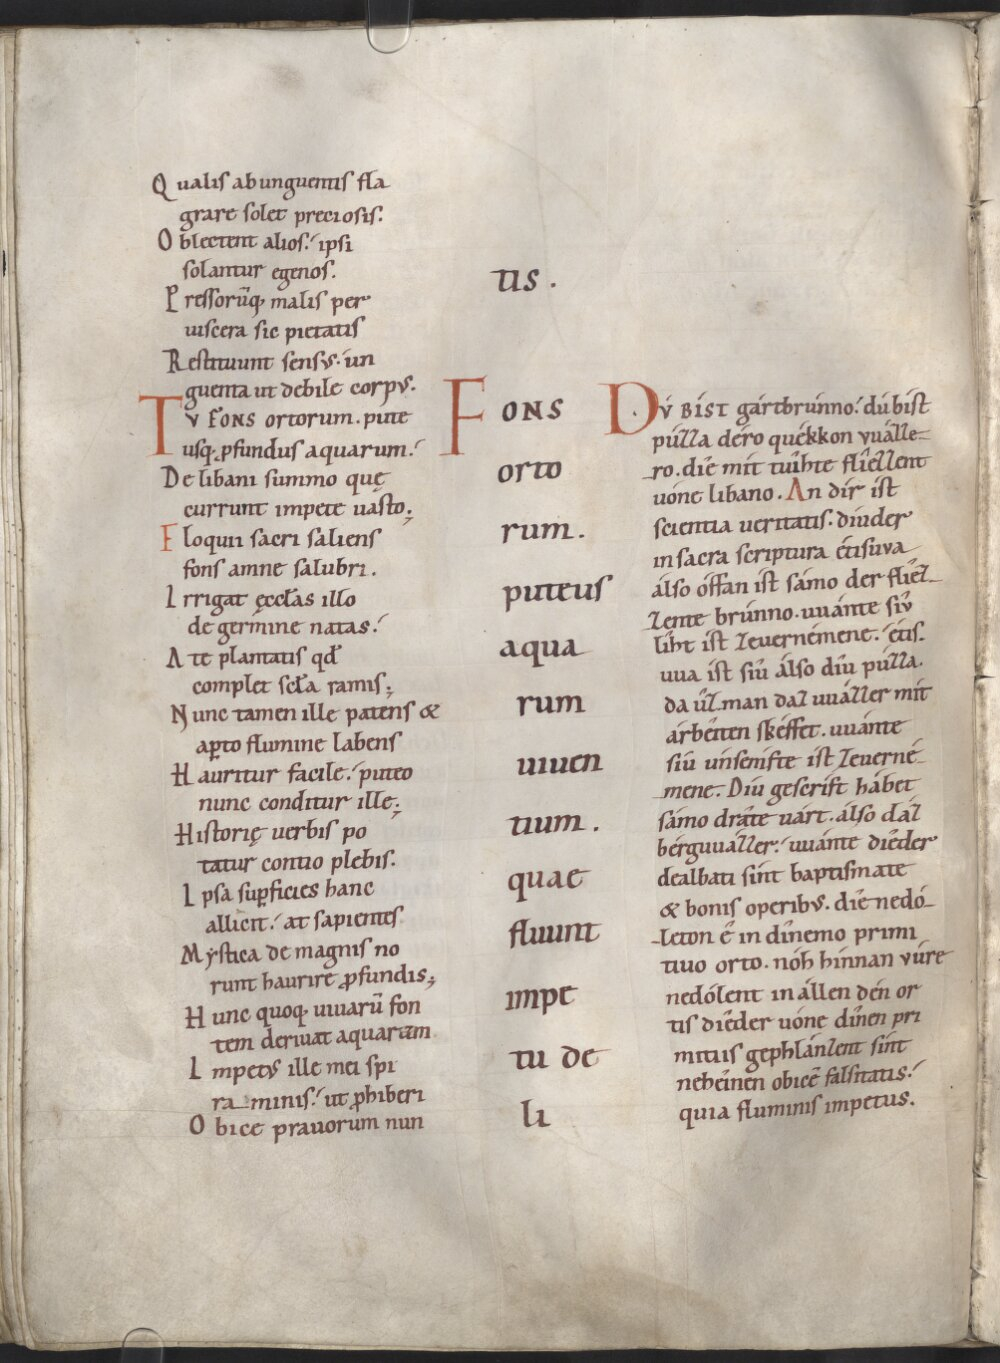 Qualis ab unguentis fla
grare solet preciosis.
Oblectent alios. ipsi
solantur egenos.
Pressorūq; malis per
uiscera sic pietatis
Restituunt sensꝰ. un
guenta ut debile corpꝰ.
TV FONS ortorum. pute
usq; ꝓfundus aquarum.
De libani summo quę
currunt impete uasto;
Eloquii sacri saliens
fons amne salubri.
Irrigat ęccłas illo
de germine natas.
A te plantatis qđ
complet scła ramis;
Nunc tamen ille patens &
aꝑto flumine labens
Hauritur facile. puteo
nunc conditur ille;
Historię uerbis po
tatur contio plebis.
Ipsa suꝑficies hanc
allicit. at sapientes
Mẏstica de magnis no
runt haurire ꝓfundis;
Hunc quoq; uiuarū fon
tem deriuat aquarum
Impetꝰ ille mei spi
raminis. ut ꝓhiberi
Obice prauorum nun
tis.
FONS
orto
rum.
puteus
aqua
rum
uiuen
tium.
quae
fluunt
impe
tu de
li
DV́ BIST gártbrúnno. dú bist
púzza déro quékkon vuázze-
ro. dîe mit tuîhte flîezzent
uóne libano. An dír ist
scientia ueritatis. díuder
in sacra scriptura étisuva
álso óffan ist sámo der flîez-
zente brúnno. uuánte sív
líht ist zeuernémene. étis-
uua ist siú álso díu púzza.
da ûz man daz uuázzer mit
árbeiten sképfet. uuánte
síu únsemfte ist zeuerné-
mene. Díu gescrift hábet
sámo drâte uárt. álso dáz
bérguuázzer. uuánte dîeder
dealbati sínt baptismate
& bonis operibꝰ. dîe nedó-
zeton ê in dînemo primi
tiuo orto. nóh hínnan vúre
nedózent in állen dén or
tis dîeder uóne dînen pri
mitiis gephlánzent sínt
nehéinen obicê falsitatis.
quia fluminis impetus.